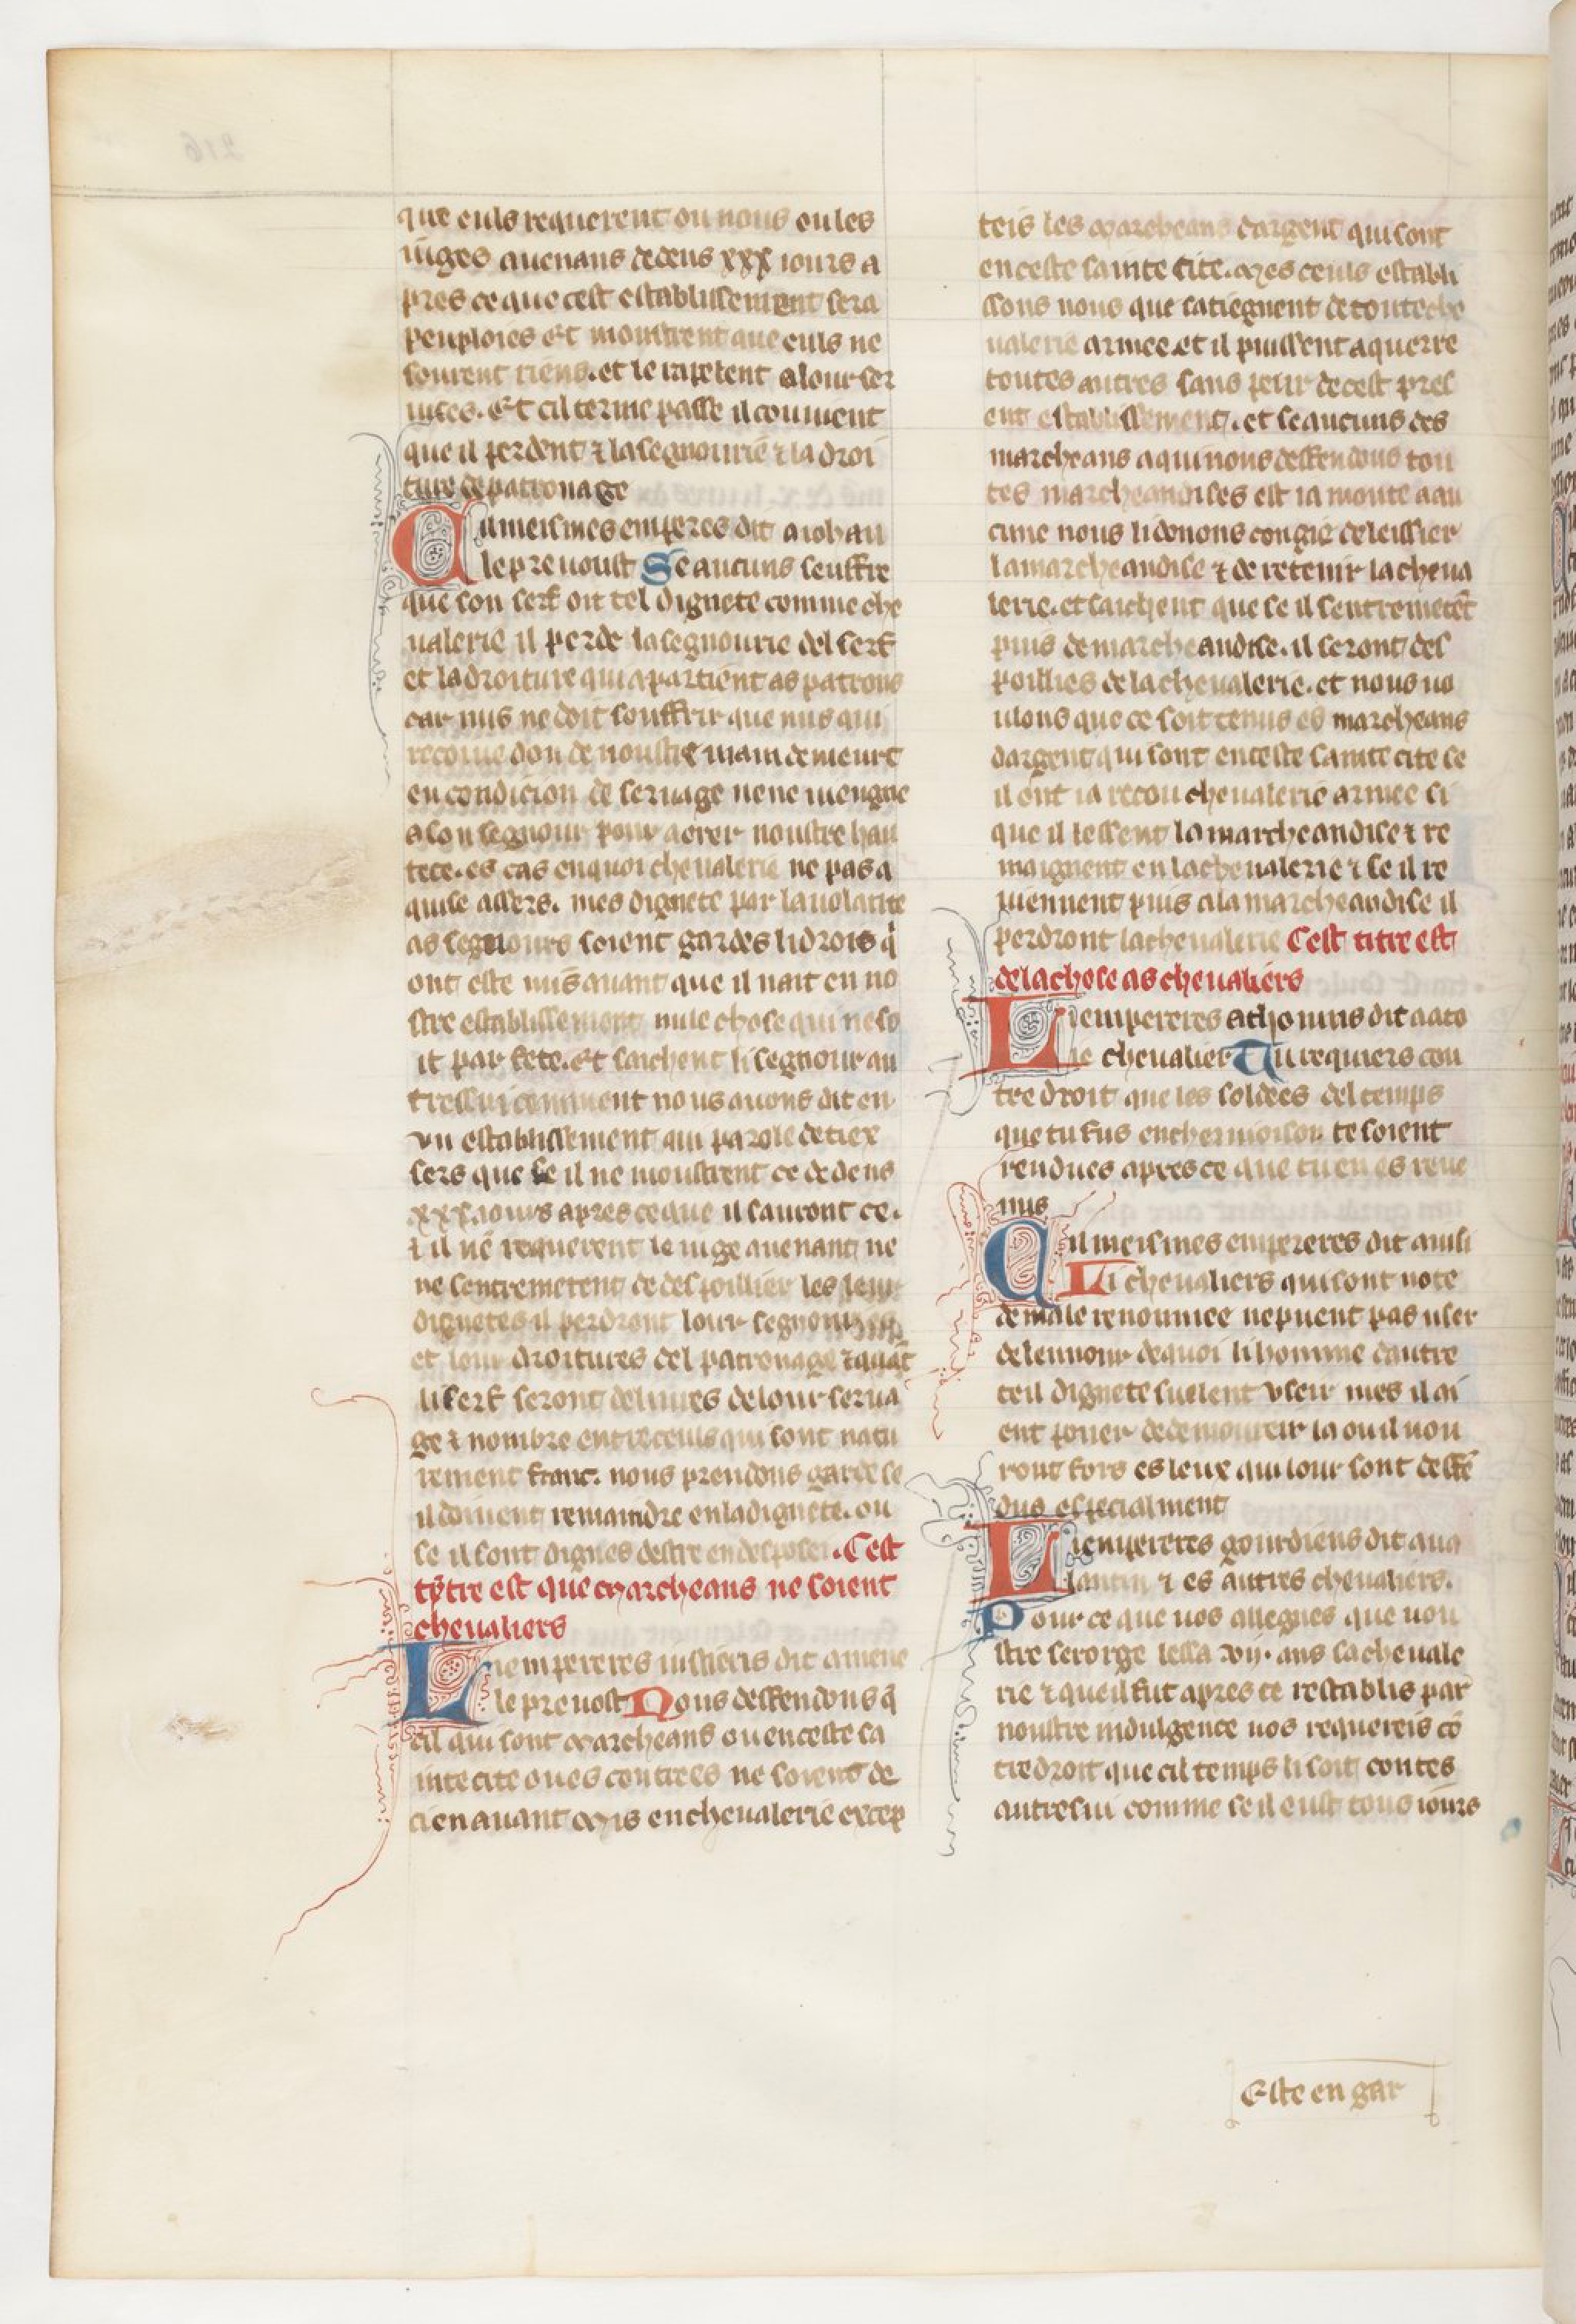 que euls requerent ou nous ou les
iuges auenans dedens xxx iours a
pres ce que cest establissement sera
peuploies Et monstrent que euls ne
sourent riens. et le rapelent a lour ser
uices. Et cil terme passe il couuient
que il perdent ⁊ la segnourie ⁊ la droi
ture de patronage
Cil meismes emperes dit a iohan
le preuoust Se aucuns seuffre
que son serf oit tel dignete comme che
ualerie il perde la segnourie del serf
et la droiture qui apartient as patrons
car nus ne doit souffrir que nus qui
recoiue don de noustre main demeurt
en condicion de seruage ne ne uiengne
a son segnour pour aorer noustre hau
tece. es cas en quoi cheualerie ne pas a
quise as sers. mes dignete par la uolante
as segnours soient gardes li drois q̃
ont este mis auant que il nait en no
stre establissement nule chose qui ne so
it par fete. Et saichent li segnour au
tressi comment nous auons dit en
vn establissement qui parole de tiex
sers que se il ne moustrent ce dedens
xxx. iours apres ce que il sauront ce.
⁊ il ne requerent le iuge auenant ne
ne sentremetent de despoillier les leur
dignetes il perdront lour segnourie
et lour droitures del patronage ⁊ quãt
li serf seront deliures de lour serua
ge ⁊ nombre entre ceuls qui sont natu
rement franc. nous prendons garde se
il doiuent remaindre en la dignete. ou
se il sont dignes destre en desposer. Cest
tytre est que marcheans ne soient
cheualiers
Li empereres iustiens dit a mene
le preuost Nous deffendons q̃
cil qui sont marcheans ou en ceste sa
inte cite ou es contrees ne soient de
ci en auant mis en cheualerie excep
teis les marcheans dargent qui sont
en ceste sainte cite. mes ceuls establi
ssons nous que satiegnent de toute che
ualerie armee. et il puissent aquerre
toutes autres sans peur de cest pres
ent establissement. et se aucuns des
marcheans a qui nous deffendons tou
tes marcheandises est ia monte a au
cune nous li donons congie de leissier
la marcheandise ⁊ de retenir la cheua
lerie. et saichent que se il sentremetẽt
puis de marcheandise. il seront des
poillies de la cheualerie. et nous uo
ulons que ce soit tenus es marcheans
dargent qui sont en ceste sainte cite se
il ont ia recou cheualerie armee si
que il lessent la marcheandise ⁊ re
maignent en la cheualerie ⁊ se il re
uiennent puis a la marcheandise il
perdront la cheualerie Cest titre est
de la chose as cheualiers
Li empereres athonins dit a ato
nie cheualier Tu requiers con
tre droit que les soldees del temps
que tu fus en chermoison te soient
rendues apres ce que tu en es reue
nus
Cil meismes empereres dit a iuli
Li cheualiers qui sont note
de male renoumee ne puent pas user
de lennour de quoi li homme dautre
teil dignete suelent vseir mes il ai
ent pouer de demoureir la ou il uou
rout fors es leux qui lour sont deffẽ
dus especialment
Li empereres gourdiens dit a ua
lantin ⁊ es autres cheualiers.
Pour ce que uos allegues que uou
stre serorge lessa .vij. ans sa cheuale
rie ⁊ que il fut apres ce restablis par
noustre indulgence uos requereis cõ
tre droit que cil temps li soit contes
autresui comme se il eust tous iours
Este en gar